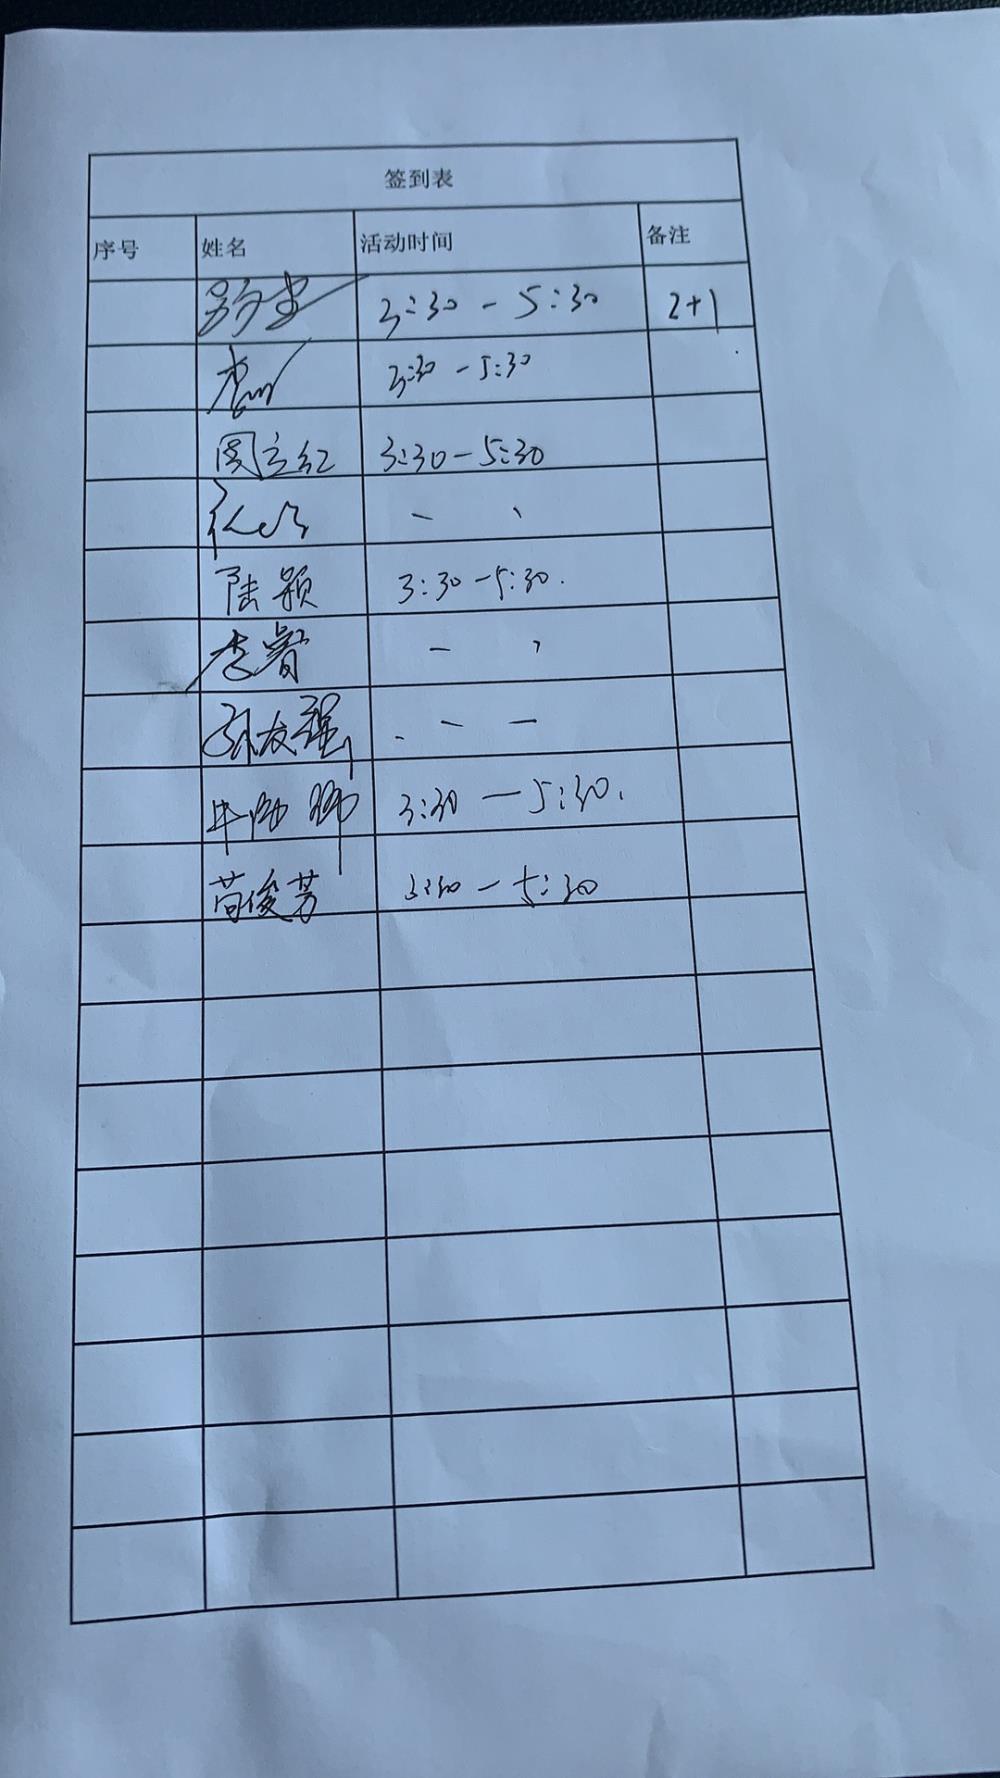 签到表
序号 姓名 活动时间 备注
3:30 - 5:30 2+1
3:30 - 5:30
周立红 3:30 - 5:30
陆颖 3:30 - 5:30.
李睿
孙友强
3:30 — 5:30.
苟俊芳 3:30 - 5:30